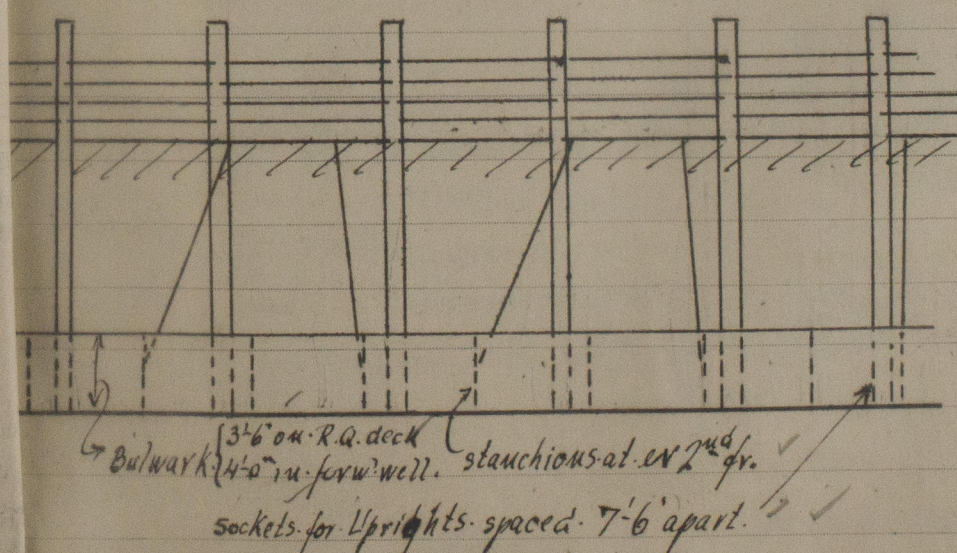 Bulwark { 3'-6" on R.Q. deck
4'-0" in forwd well.
stanchions at ev 2nd fr.
Sockets for Uprights spaced 7'-6" apart.